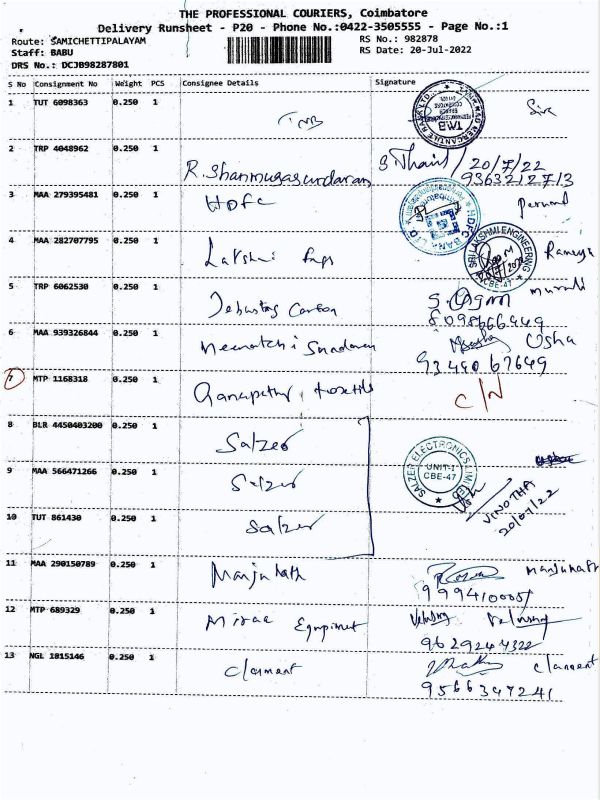 THE PROFESSIONAL COURIERS, Coimbatore
Delivery Runsheet - P20 - Phone No.:0422-3505555 - Page No.:1
Route: SAMICHETTIPALAYAM
RS No.: 982878
Staff: BABU
RS Date: 20-Jul-2022
DRS No.: DCJB98287801
S No Consignment No Weight PCS Consignee Details Signature
1 TUT 6098363 0.250 1 TMB Sir
TMB
2 TRP 4048962 0.250 1 R. Shanmugasundaram 20/7/22
9363212713
3 MAA 279395481 0.250 1 HDFC
HDFC BANK LTD
4 MAA 282707795 0.250 1 Lakshmi
SRI LAKSHMI ENGINEERING
CBE-47
5 TRP 6062530 0.250 1
8098666449
6 MAA 939326844 0.250 1 Usha
9349067649
7 MTP 1168318 0.250 1 Ganapathy C/N
8 BLR 4450403200 0.250 1 Salzer
SALZER ELECTRONICS LIMITED
UNIT-I
CBE-47
9 MAA 566471266 0.250 1 Salzer
VINOTHA
20/07/22
10 TUT 861430 0.250 1 Salzer
11 MAA 290150789 0.250 1 Manjunath Manjunath
12 MTP 689329 0.250 1
9629244322
13 NGL 1815146 0.250 1 Clarment Clarment
9566347241